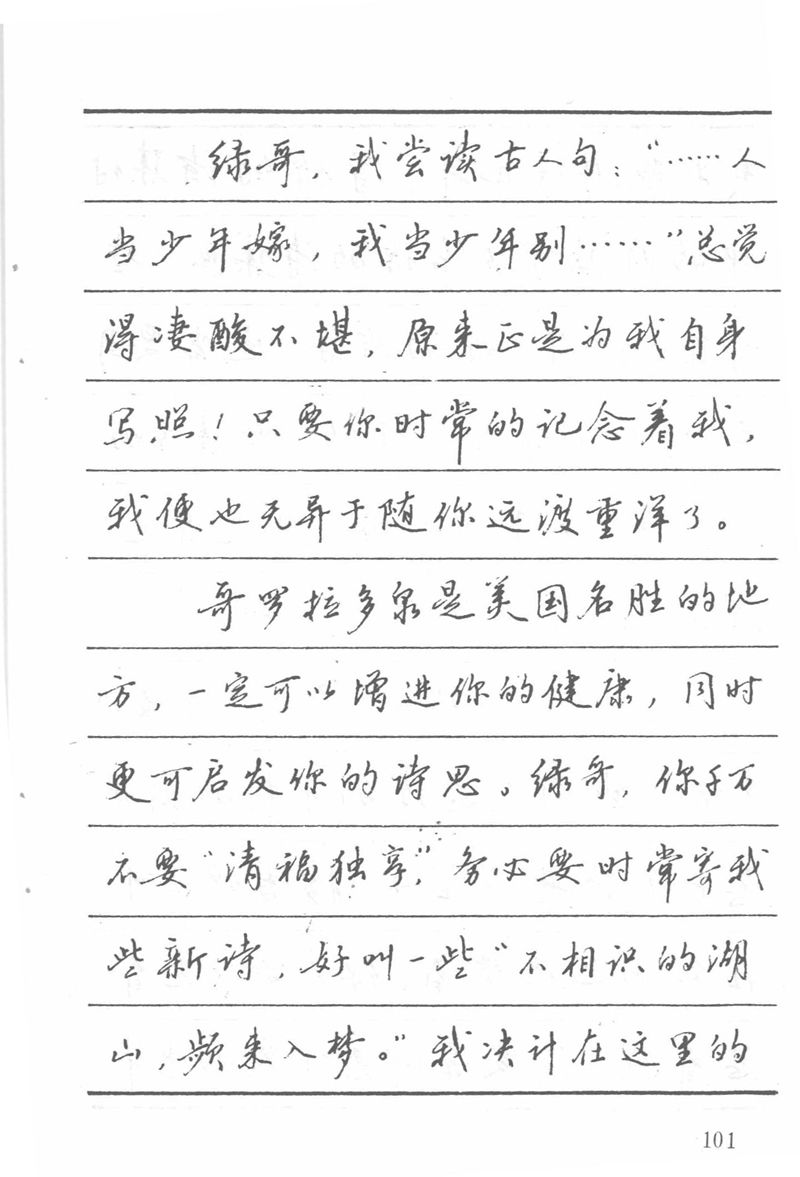 绿哥，我尝读古人句：“……人
当少年嫁，我当少年别……”总觉
得凄酸不堪，原来正是为我自身
写照！只要你时常的记念着我，
我便也无异于随你远渡重洋了。
哥罗拉多泉是美国名胜的地
方，一定可以增进你的健康，同时
更可启发你的诗思。绿哥，你千万
不要“清福独享”，务必要时常寄我
些新诗，好叫一些“不相识的湖
山，频来入梦。”我决计在这里的
101